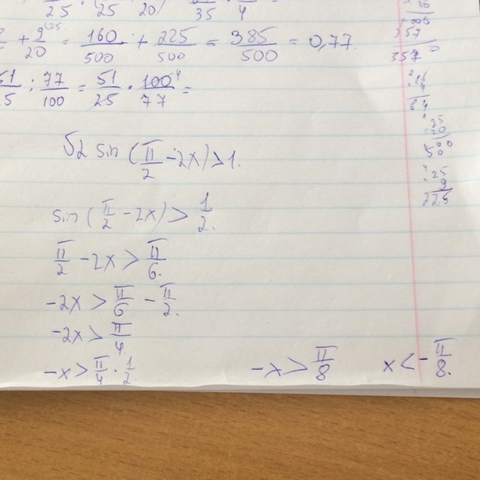 /25 · /25 · 20) /35 · /4 =
/20 = 160/500 + 225/500 = 385/500 = 0,77
51/25 : 77/100 = 51/25 · 100⁴/77 =
√2 sin (π/2 - 2x) > 1.
sin (π/2 - 2x) > 1/2.
π/2 - 2x > π/6.
-2x > π/6 - π/2.
-2x > π/4
-x > π/4 · 1/2 -x > π/8 x < -π/8.
357
3570
64
25
20
500
25
9
225